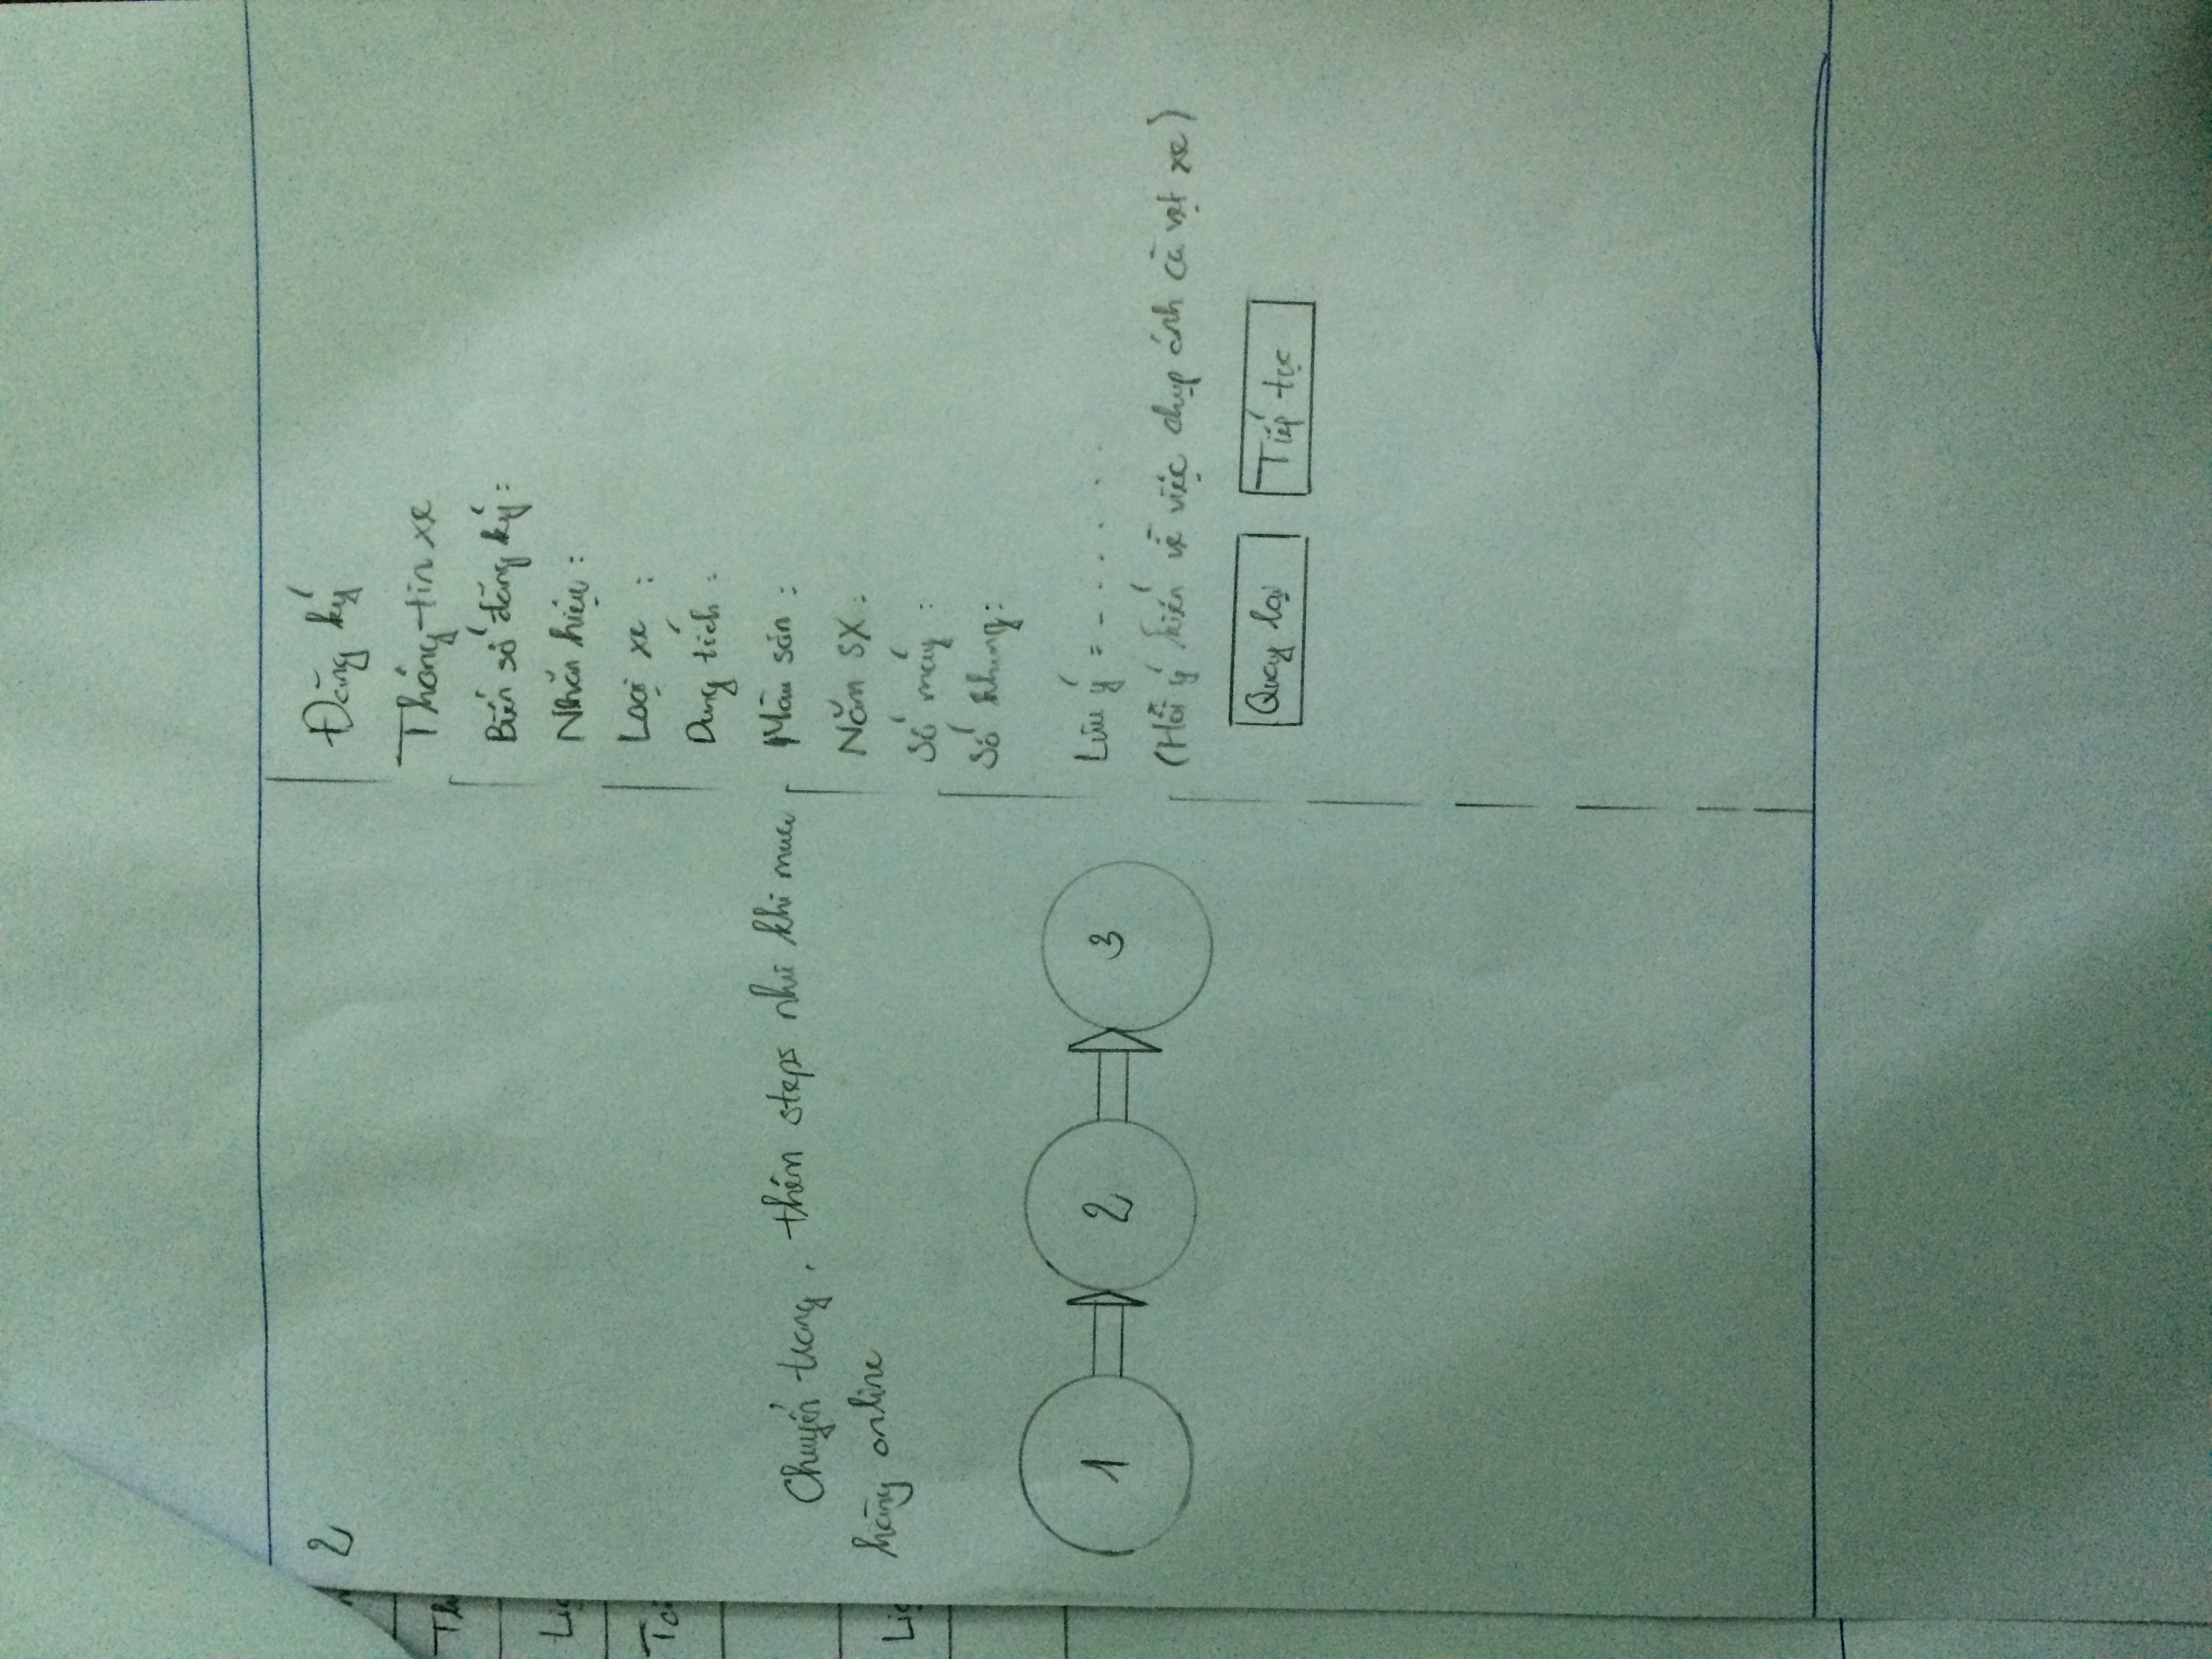 2
Chuyển trang, thêm steps như khi mua
hàng online
1
2
3
Đăng ký
Thông tin xe
Biển số đăng ký:
Nhãn hiệu:
Loại xe :
Dung tích :
Màu sơn :
Năm SX :
Số máy :
Số khung:
Lưu ý : - . . . . . .
(Hỏi ý kiến về việc chụp ảnh cà vẹt xe)
Quay lại
Tiếp tục
Th
Lig
Lig